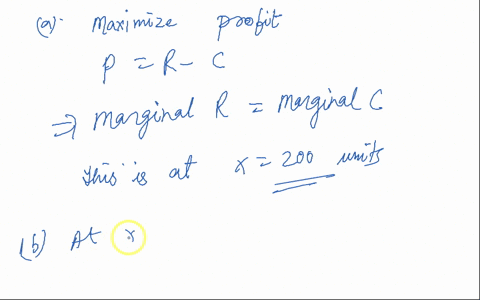 (a). Maximize profit
P = R - C
⇒ marginal R = marginal C
This is at x = 200 units
(b) At x